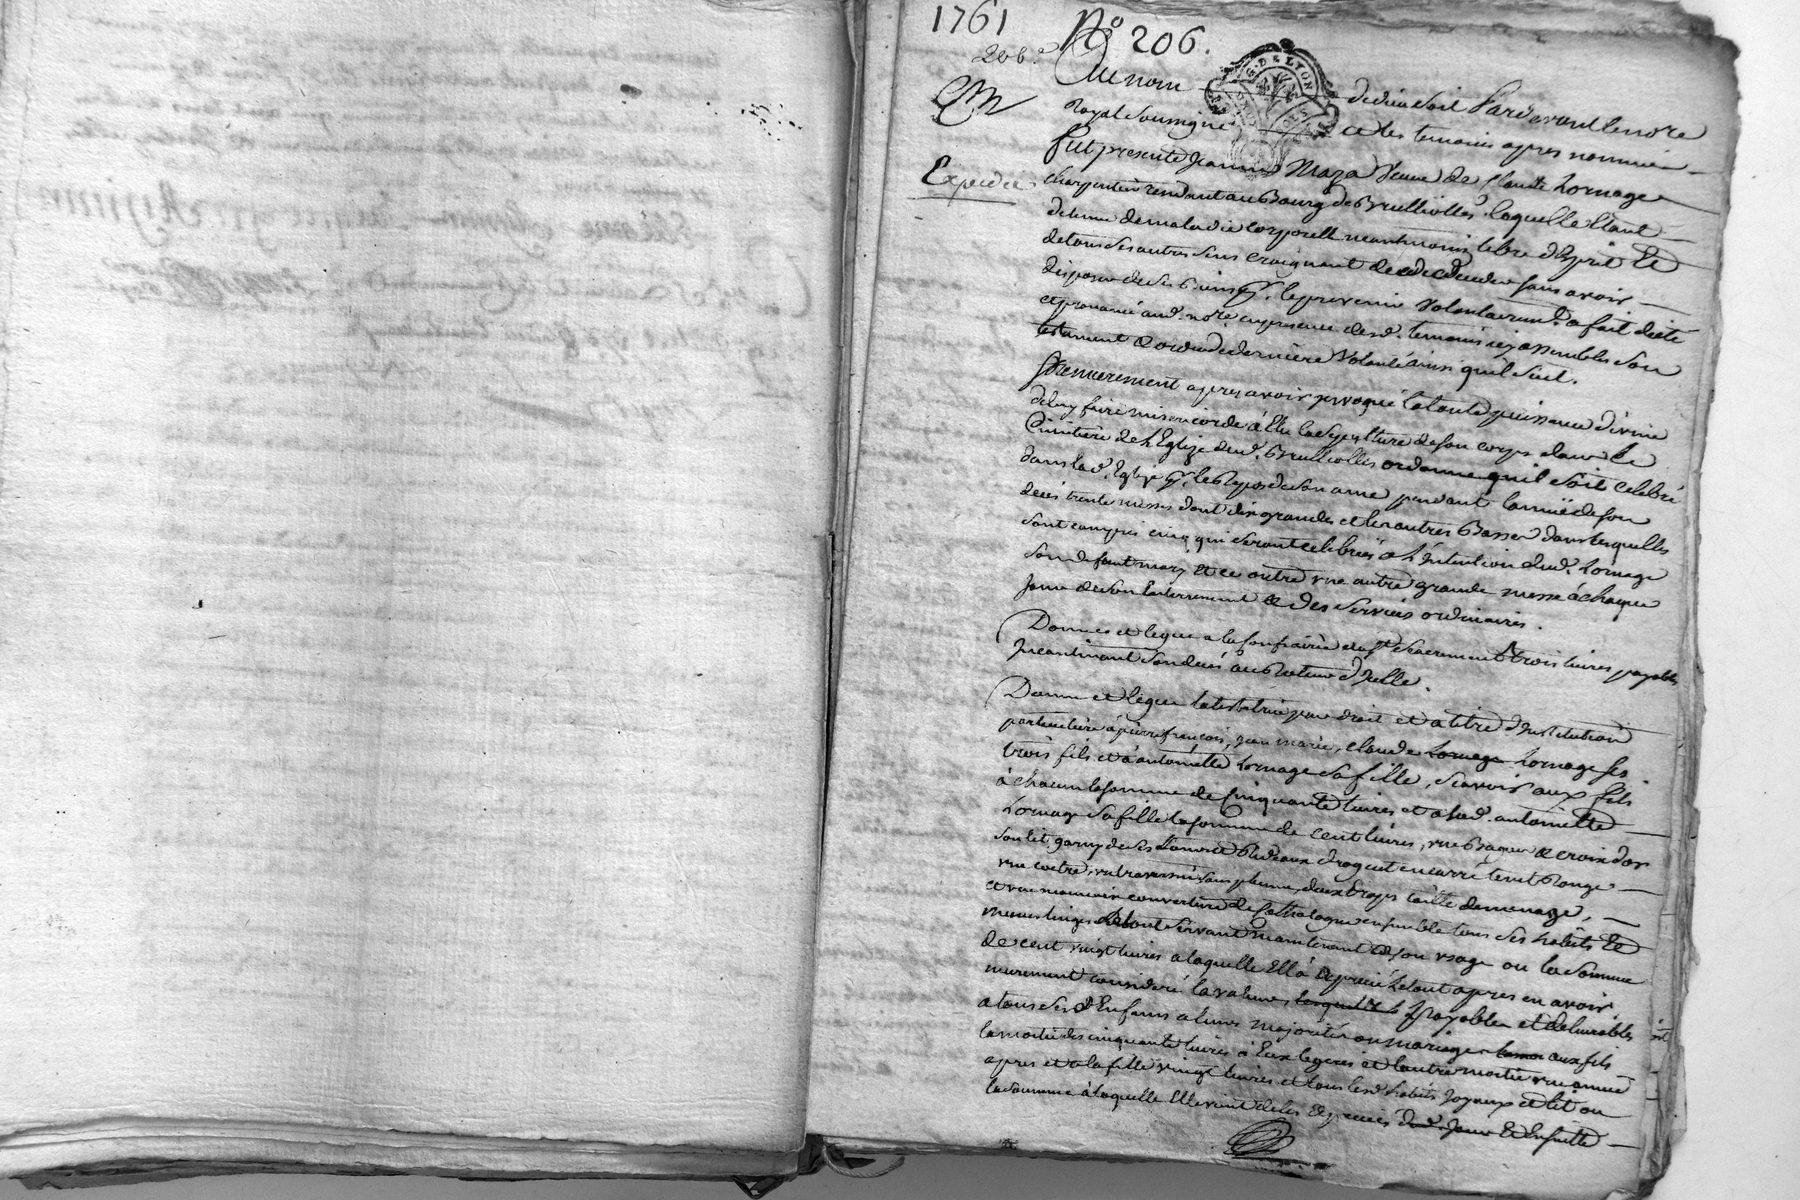 1761 No 206.
206e
Au nom de dieu soit Pardevant le no.re
Royal soussigné et les temoins apres nommés
Expediée
fut presente Jeanne Maza veuve de Claude Lornage
charpentier residant au Bourg de Brulliolles, laquelle etant
detenue de maladie corporelle neantmoins libre d'Esprit Et
de tous ses autres sens craignant de deceder sans avoir
disposer de ses Biens pr. le prevenir volontairemt. a fait dicté
et prononcé aud. no.re en presence desd. temoins icy assemblés son
testament & ordre de derniere volonté ainsi qu'il suit.
Premierement apres avoir invoqué la toute puissance divine
de luy faire misericorde à Elu la sepulture de son corps dans le
Cimitiere de l'Eglize dud. Brulliolles ordonne qu'il soit celebré
dans lad. Eglize pr. le Repos de son ame pendant l'année de son
deces trente messes dont dix grandes et les autres Basses dans lesquelles
sont compris cinq qui seront celebrées à l'intention dud. Lornage
son defunt mary Et ce outre une autre grande messe à chaque
jour de son Enterrement & des services ordinaires.
Donne et legue a la Confrairie du St. Sacrement trois livres payables
incontinant son deces au Recteur d'Icelle.
Donne et legue la testatrice par droit et a titre d'Institution
particuliere à pierre françois, jean marie, claude Lornage Lornage ses
trois fils et à antoinette Lornage sa fille, sçavoir aux fils
à chacun la somme de Cinquante livres et a lad. antoinette
Lornage sa fille la somme de cent livres, une Bague & croix d'or
son lit garny de ses Rideaux droguet en carré vert Rouge
une coetre, un traversin sans plume, deux draps toille de menage,
et une mauvaise couverture de Cathalogne ensemble tous ses habits Et
menus linges Et tout servant maintenant de son usage ou la somme
de cent vingt livres a laquelle Ell'a Apprecié le tout apres en avoir
murement consideré la valeur, lesquelles payables et delivrables
a tous sesd. Enfans a leurs majorités ou mariage aux fils
la moitié des cinquante livres à Eux leguées et l'autre moitié une année
apres et a la fille vingt livres et tous lesd. habits joyaux et lit ou
la somme à laquelle Elle vient de les apprecier dud. jour Et Ensuitte